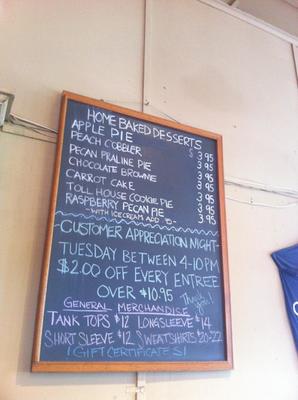 HOME BAKED DESSERTS
APPLE PIE $3.95
PEACH COBBLER 3.95
PECAN PRALINE PIE 3.95
CHOCOLATE BROWNIE 3.95
CARROT CAKE 3.95
TOLL HOUSE COOKIE PIE 3.95
RASPBERRY PECAN PIE 3.95
-WITH ICECREAM ADD
-CUSTOMER APPRECIATION NIGHT-
TUESDAY BETWEEN 4-10 PM
$2.00 OFF EVERY ENTREE
OVER $10.95
Thank you!
GENERAL MERCHANDISE
TANK TOPS $12 LONGSLEEVE $14
SHORT SLEEVE $12 SWEATSHIRTS $20-22
! GIFT CERTIFICATES!